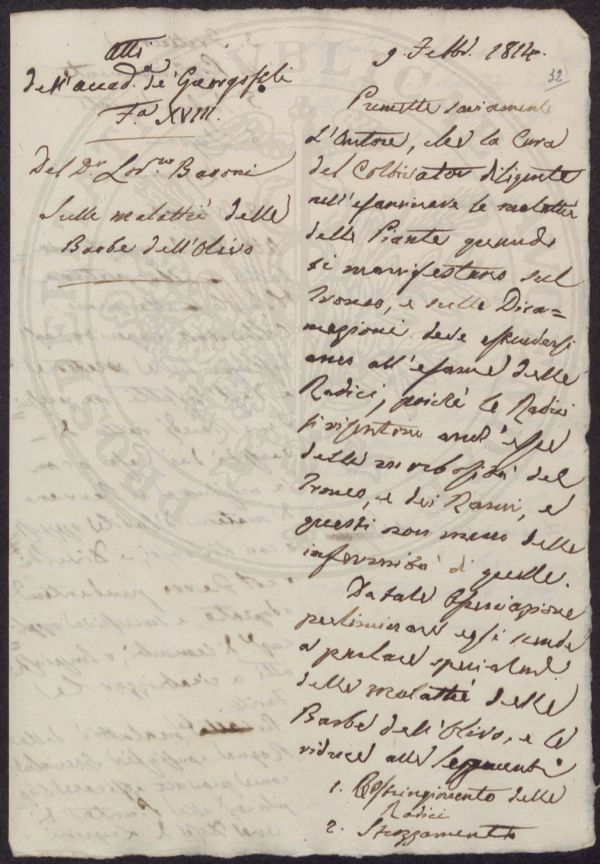 Atti
dell'accad.a de' Georgofili
T.o XVIII.
Del Dr. Lod.co Baroni
Sulle malattie delle
Barbe dell'Olivo
9. Febb. 1814.
32
Premette saviamente
L'Autore, che la Cura
del Coltivator diligente
nell'esaminare le malattie
delle Piante quando
si manifestano sul
Tronco, e sulle Dira=
mazioni deve estendersi
anco all'esame delle
Radici, poichè le Radici
risentono anch'esse
delle morbosità del
Tronco, e dei Rami, e
questi non meno delle
infermità di quelle.
Da tale Osservazione
preliminare egli scende
a parlare specialmte.
delle malattie delle
Barbe dell'Olivo, e le
riduce alle seguenti
1. Costringimento delle
Radici
2. Strozzamento